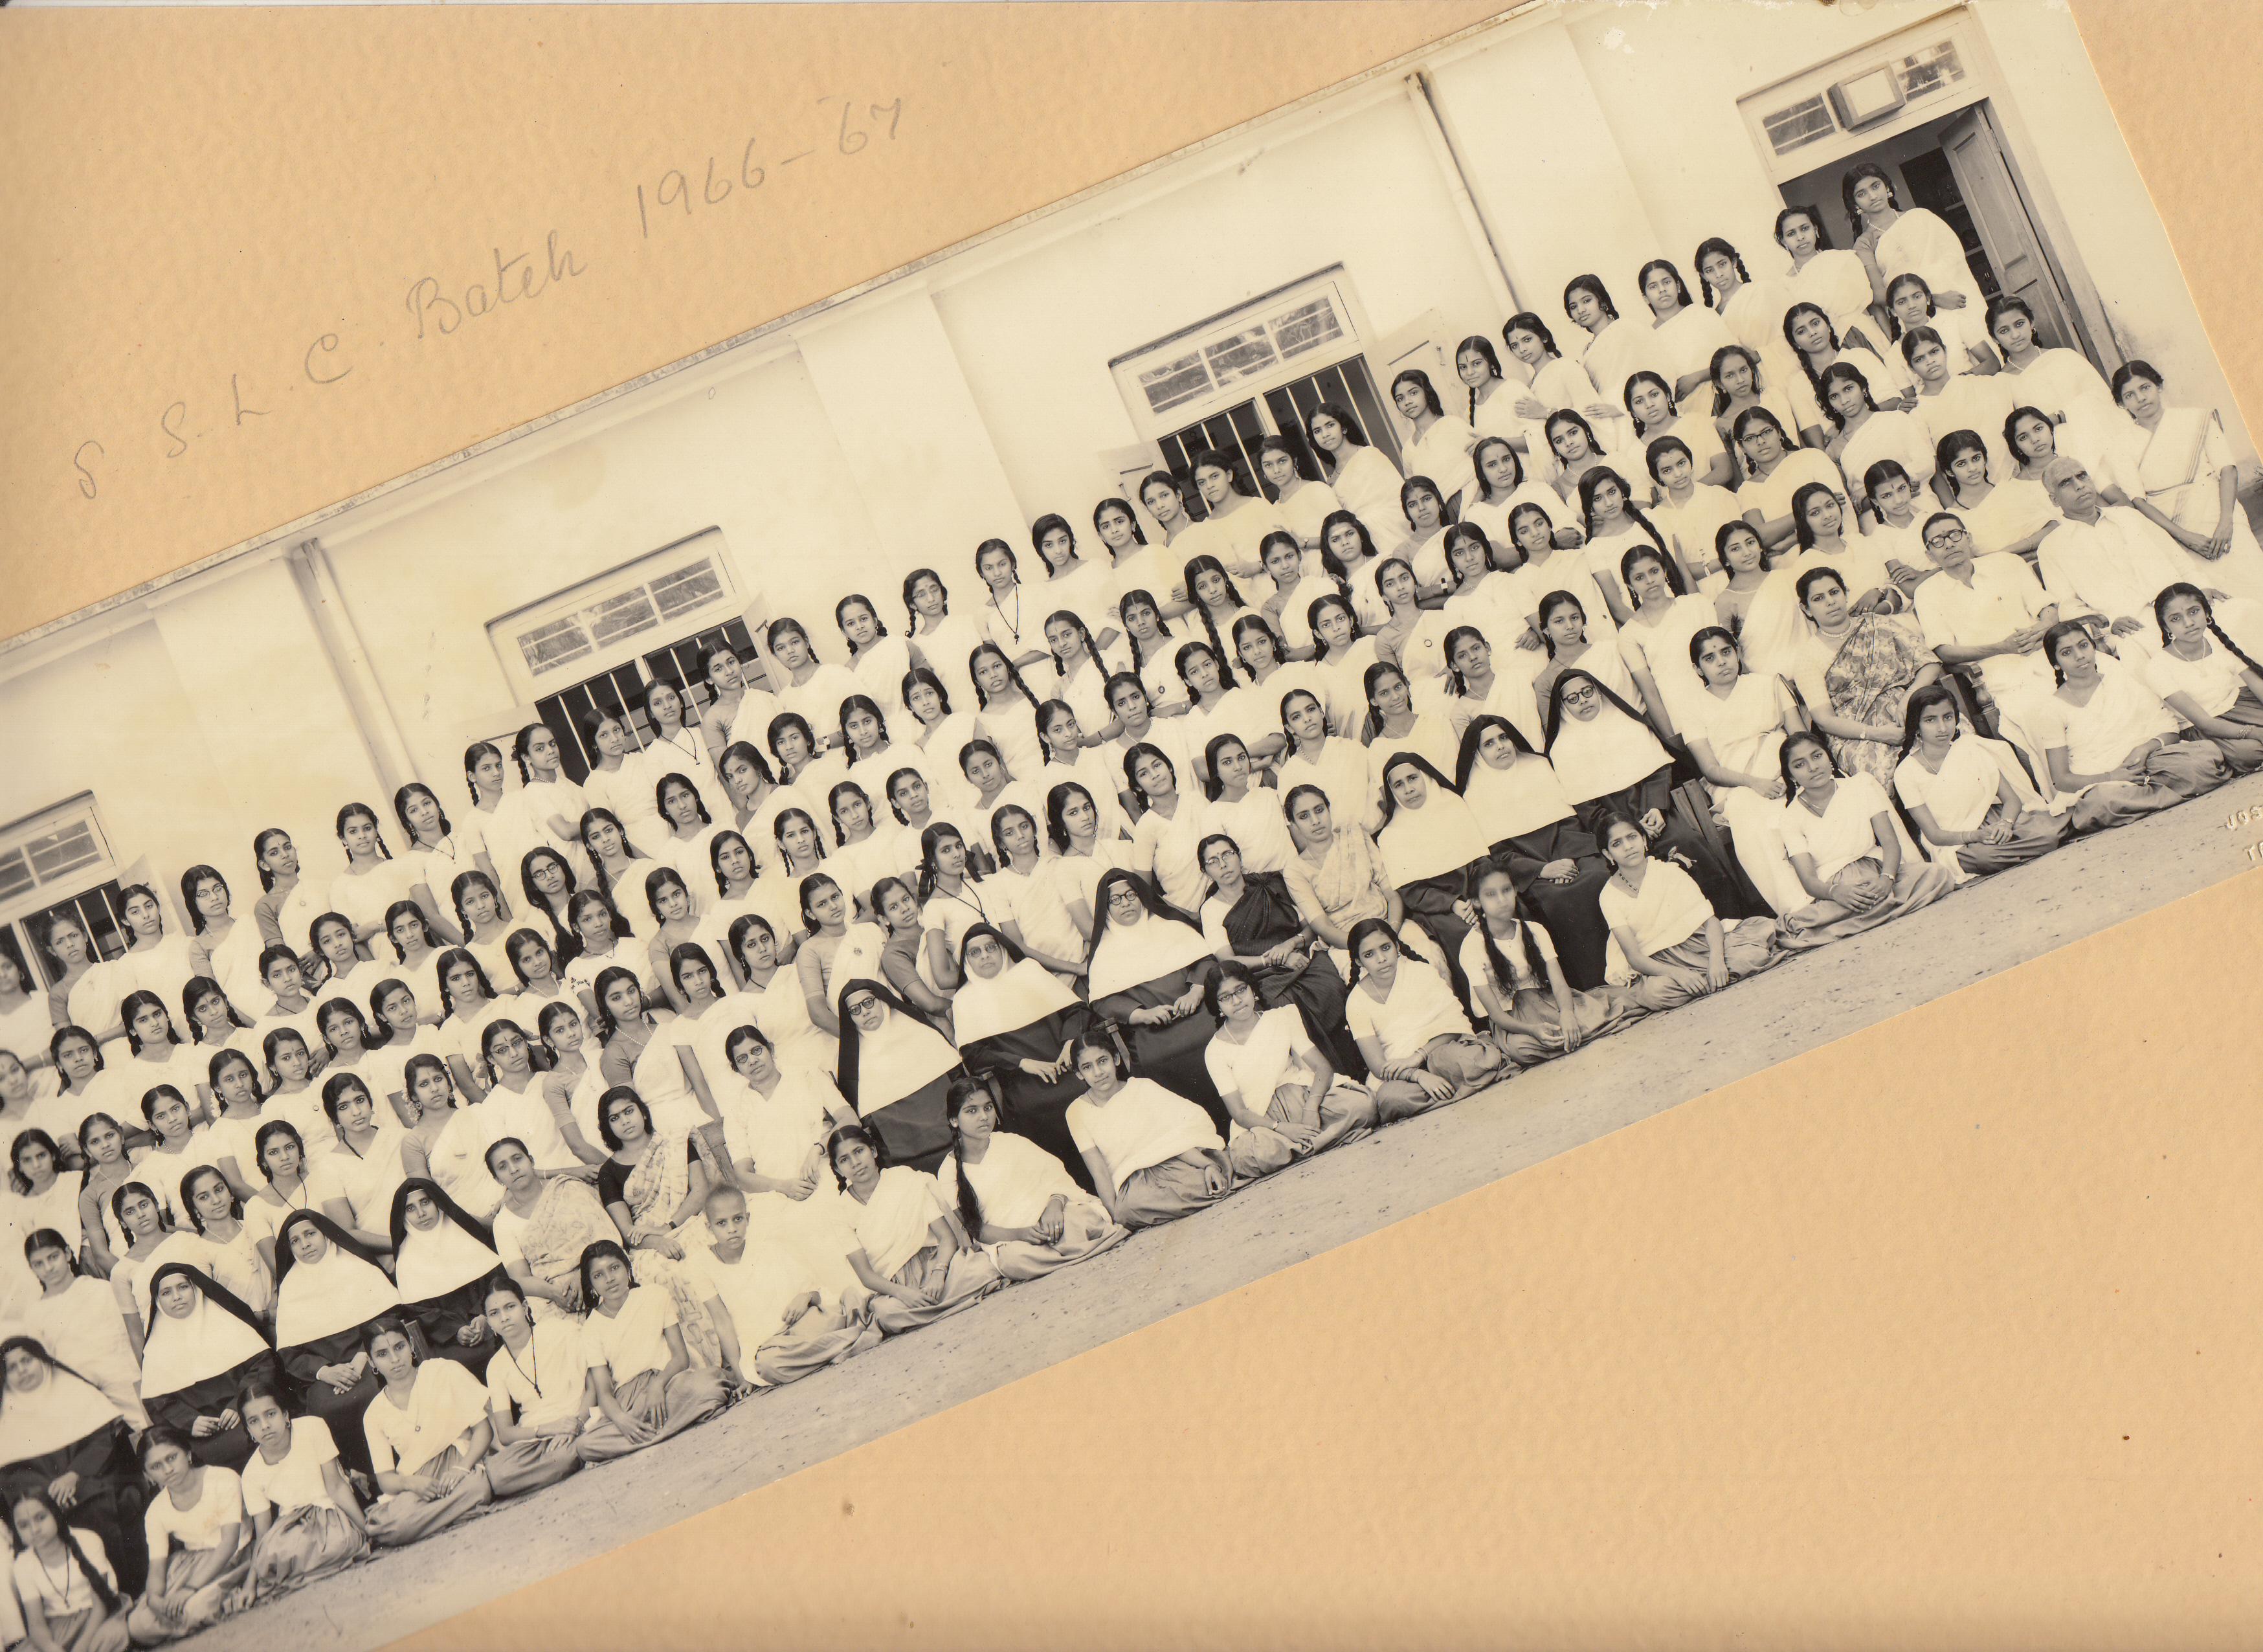 S. S. L. C. Batch 1966-67